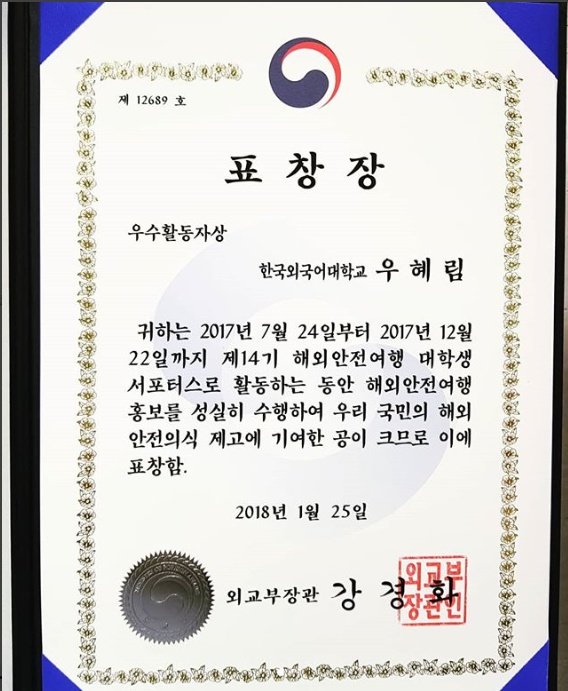 제 12689 호
표창장
우수활동자상
한국외국어대학교 우혜림
귀하는 2017년 7월 24일부터 2017년 12월
22일까지 제14기 해외안전여행 대학생
서포터스로 활동하는 동안 해외안전여행
홍보를 성실히 수행하여 우리 국민의 해외
안전의식 제고에 기여한 공이 크므로 이에
표창함.
2018년 1월 25일
외교부장관 강경화
외교부
장관인